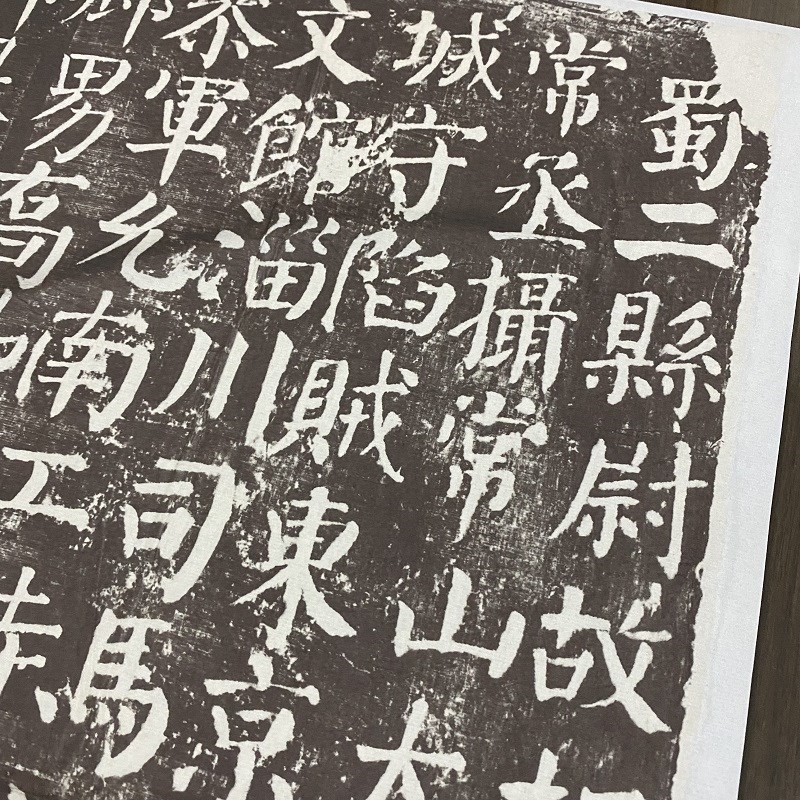 蜀二縣尉故
常丞攝常山太
城守陷賊東京
文館淄川司馬
參軍允南工
男喬